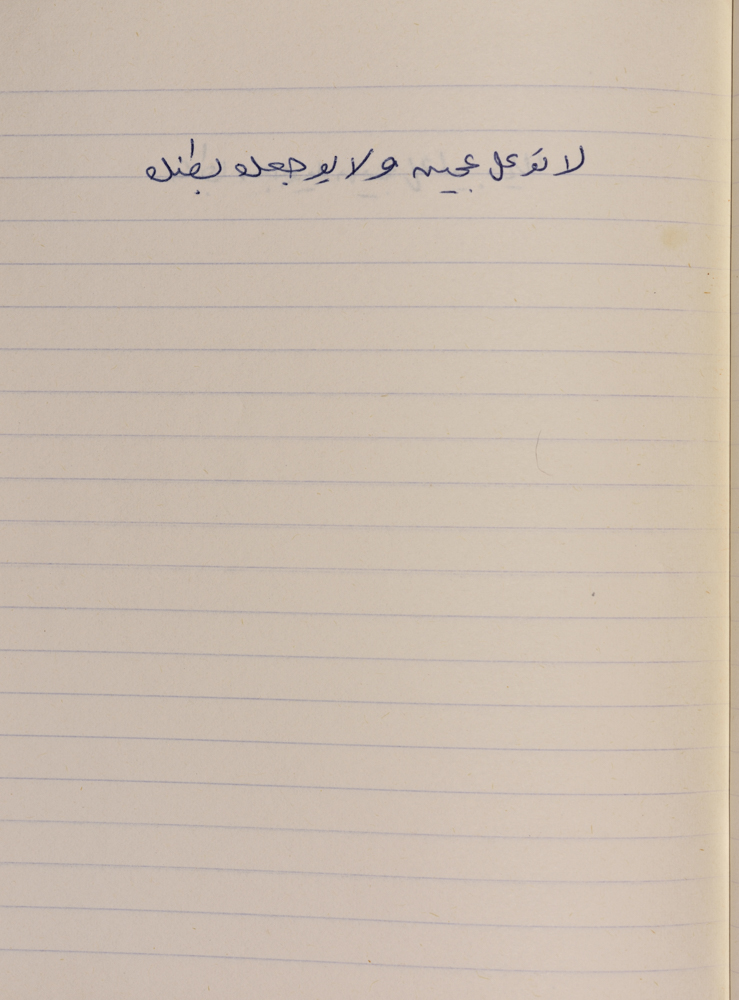 لا توكل عجين ولا يوجعك بطنك